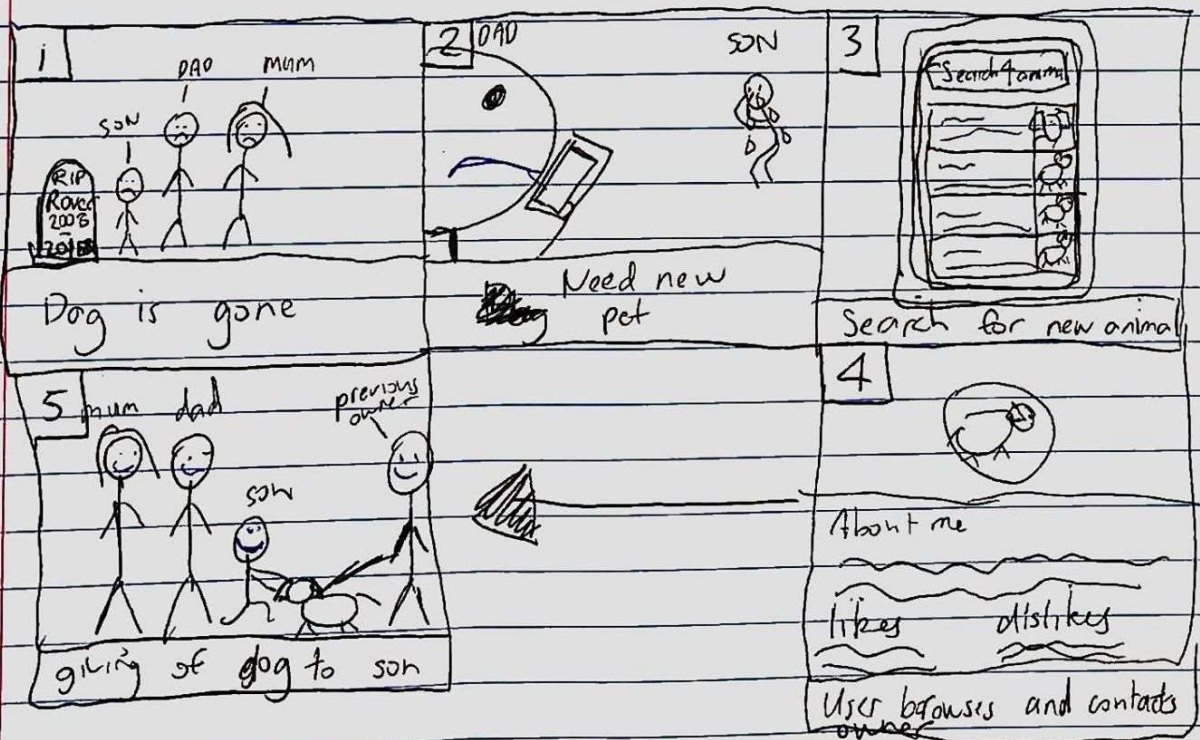 1
DAD
MUM
SON
RIP
Rover
2008
-
Dog is gone
2
DAD
SON
Need new
pet
3
Search 4 animal
Search for new animal
4
About me
likes
dislikes
User browses and contacts
owner
5
mum
dad
previous
owner
SON
giving of dog to son